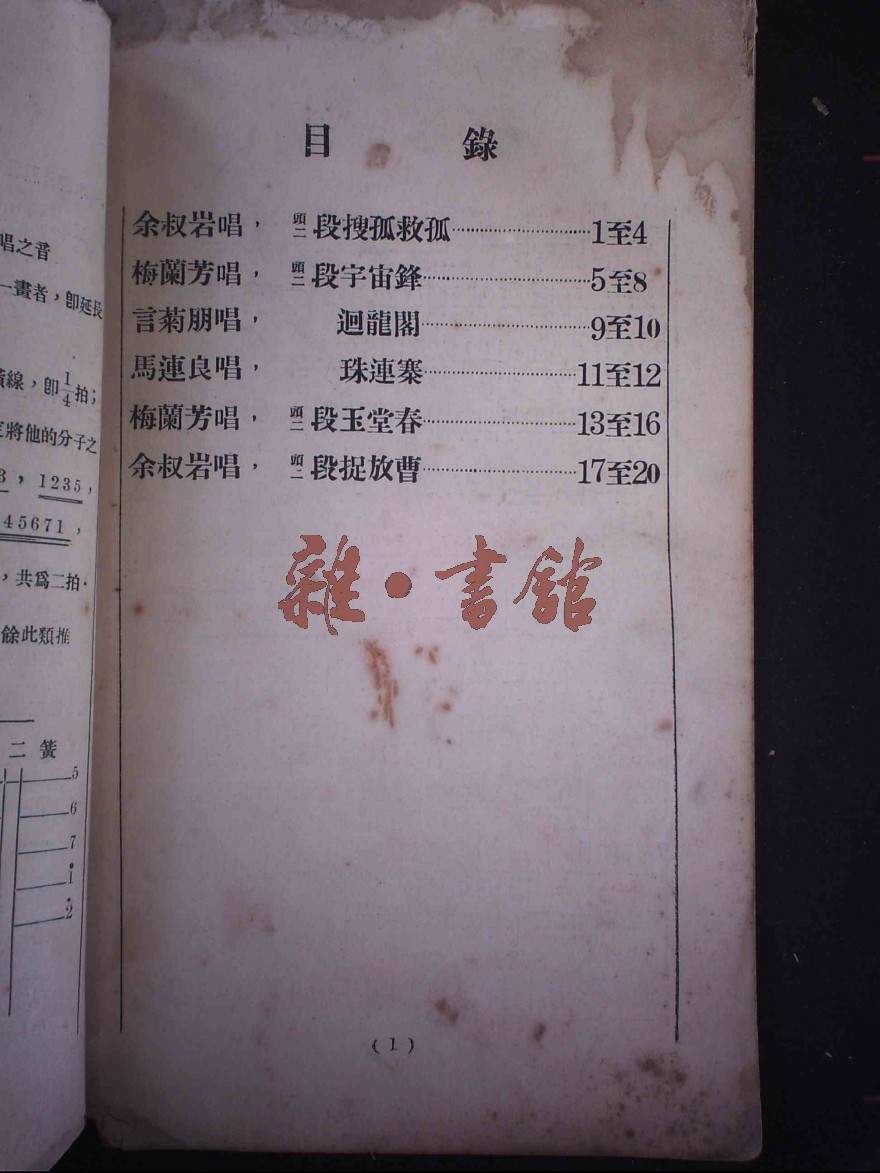 唱之音
一畫者，卽延長
線，卽1/4拍；
將他的分子之
3，1235，
45671，
，共爲二拍．
餘此類推
二簧
5
6
7
i
2̇
目錄
余叔岩唱，頭二段搜孤救孤…………1至4
梅蘭芳唱，頭二段宇宙鋒…………5至8
言菊朋唱，迴龍閣…………9至10
馬連良唱，珠連寨…………11至12
梅蘭芳唱，頭二段玉堂春…………13至16
余叔岩唱，頭二段捉放曹…………17至20
雜·書館
(1)